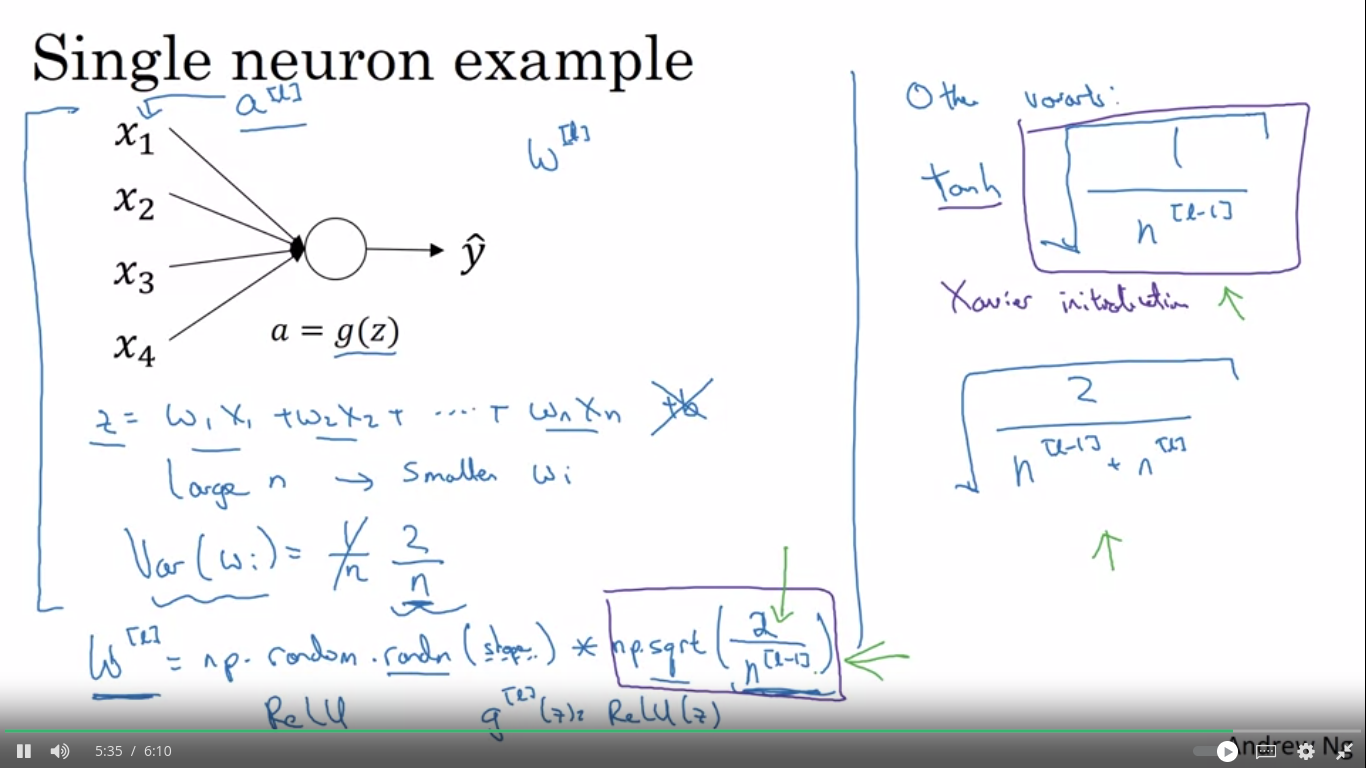 Single neuron example
a^[l]
x₁
x₂
x₃
x₄
ŷ
a = g(z)
W^[l]
z = w₁x₁ + w₂x₂ + ..... + wₙxₙ +b
Large n → Smaller wᵢ
Var(wᵢ) = 1/n 2/n
W^[l] = np.random.randn(shape) * np.sqrt(2/n^[l-1])
ReLU g^[l](z) = ReLU(z)
Other variants:
tanh √(1/n^[l-1])
Xavier initialization ↑
√(2/(n^[l-1] + n^[l]))
↑
5:35 / 6:10
Andrew Ng